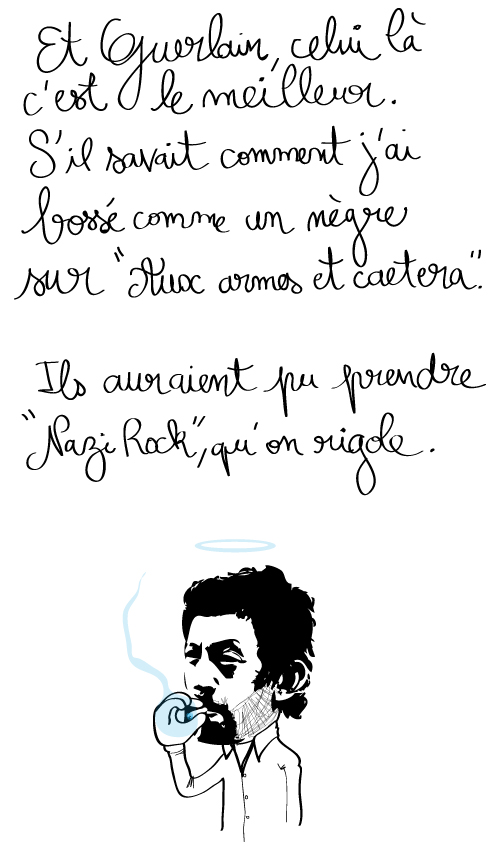 Et Guerlain, celui là
c'est le meilleur.
S'il savait comment j'ai
bossé comme un nègre
sur "Aux armes et caetera".
Ils auraient pu prendre
"Nazi Rock", qu'on rigole.